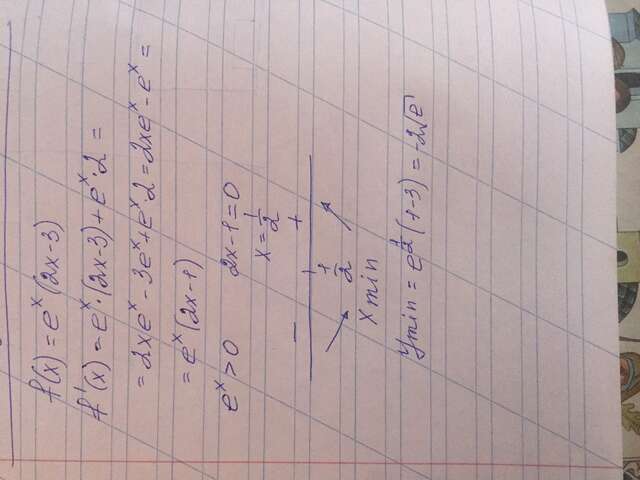 f(x) = eˣ(2x-3)
f'(x) = eˣ·(2x-3) + eˣ·2 =
= 2xeˣ - 3eˣ + eˣ·2 = 2xeˣ - eˣ =
= eˣ(2x-1)
eˣ > 0 2x-1=0
x = 1/2
- +
1/2
x min
y min = e^(1/2) (1-3) = -2√e